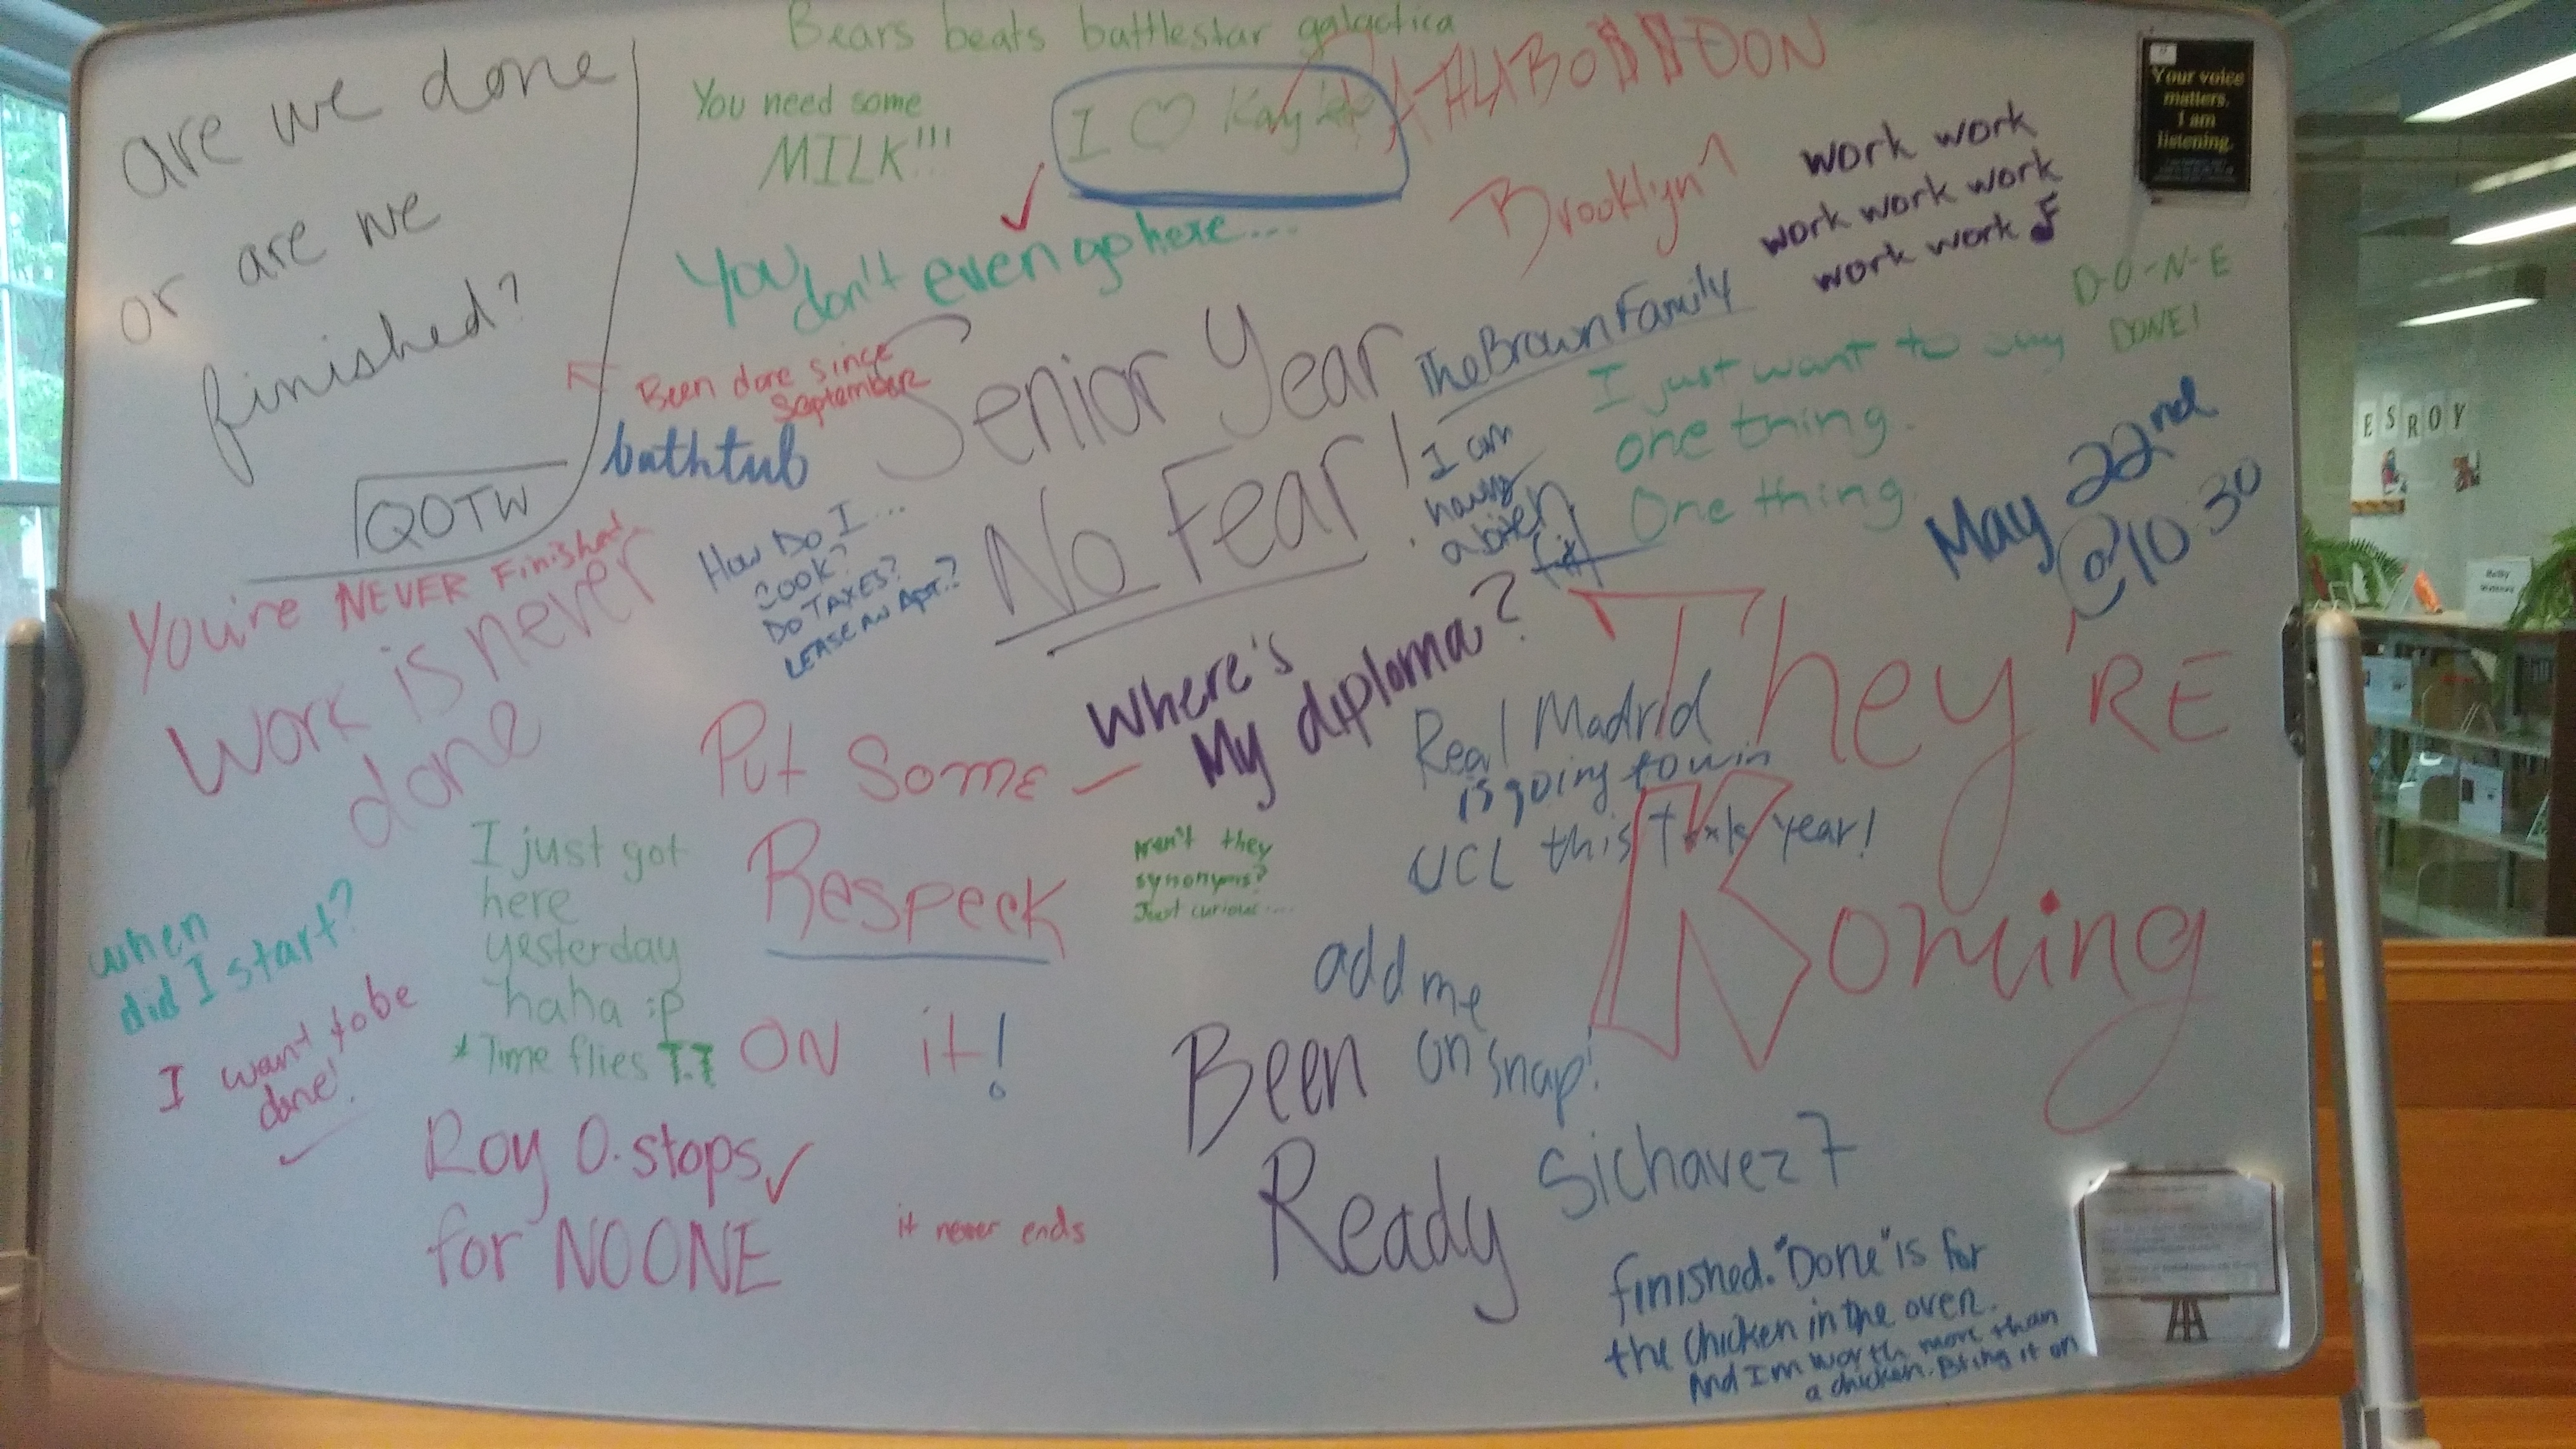 are we done
or are we
finished?
QOTW
Bears beats battlestar galactica
You need some
MILK!!!
I ♡
Brooklyn
work work
work work work
work work
Your voice
matters.
I am
listening.
You don't even go here...
Been done since
September
bathtub
Senior Year
No Fear!
The Brown Family
I am
I just want to say
one thing.
One thing.
D-O-N-E
DONE!
May 22nd
@ 10:30
You're NEVER Finished
Work is never
done
How Do I...
COOK?
DO TAXES?
LEASE AN APT.?
Where's
My diploma?
Put Some
Respeck
ON it!
Real Madrid
is going to win
UCL this year!
They'RE
Koming
Aren't they
synonyms?
Just curious....
when
did I start?
I want to be
done!
I just got
here
yesterday
haha :P
*Time flies T.T
Roy O. stops
for NO ONE
it never ends
add me
on snap!
Sichavez7
Been
Ready
finished. "Done" is for
the chicken in the oven.
And I'm worth more than
a chicken. Bring it on
ESROY